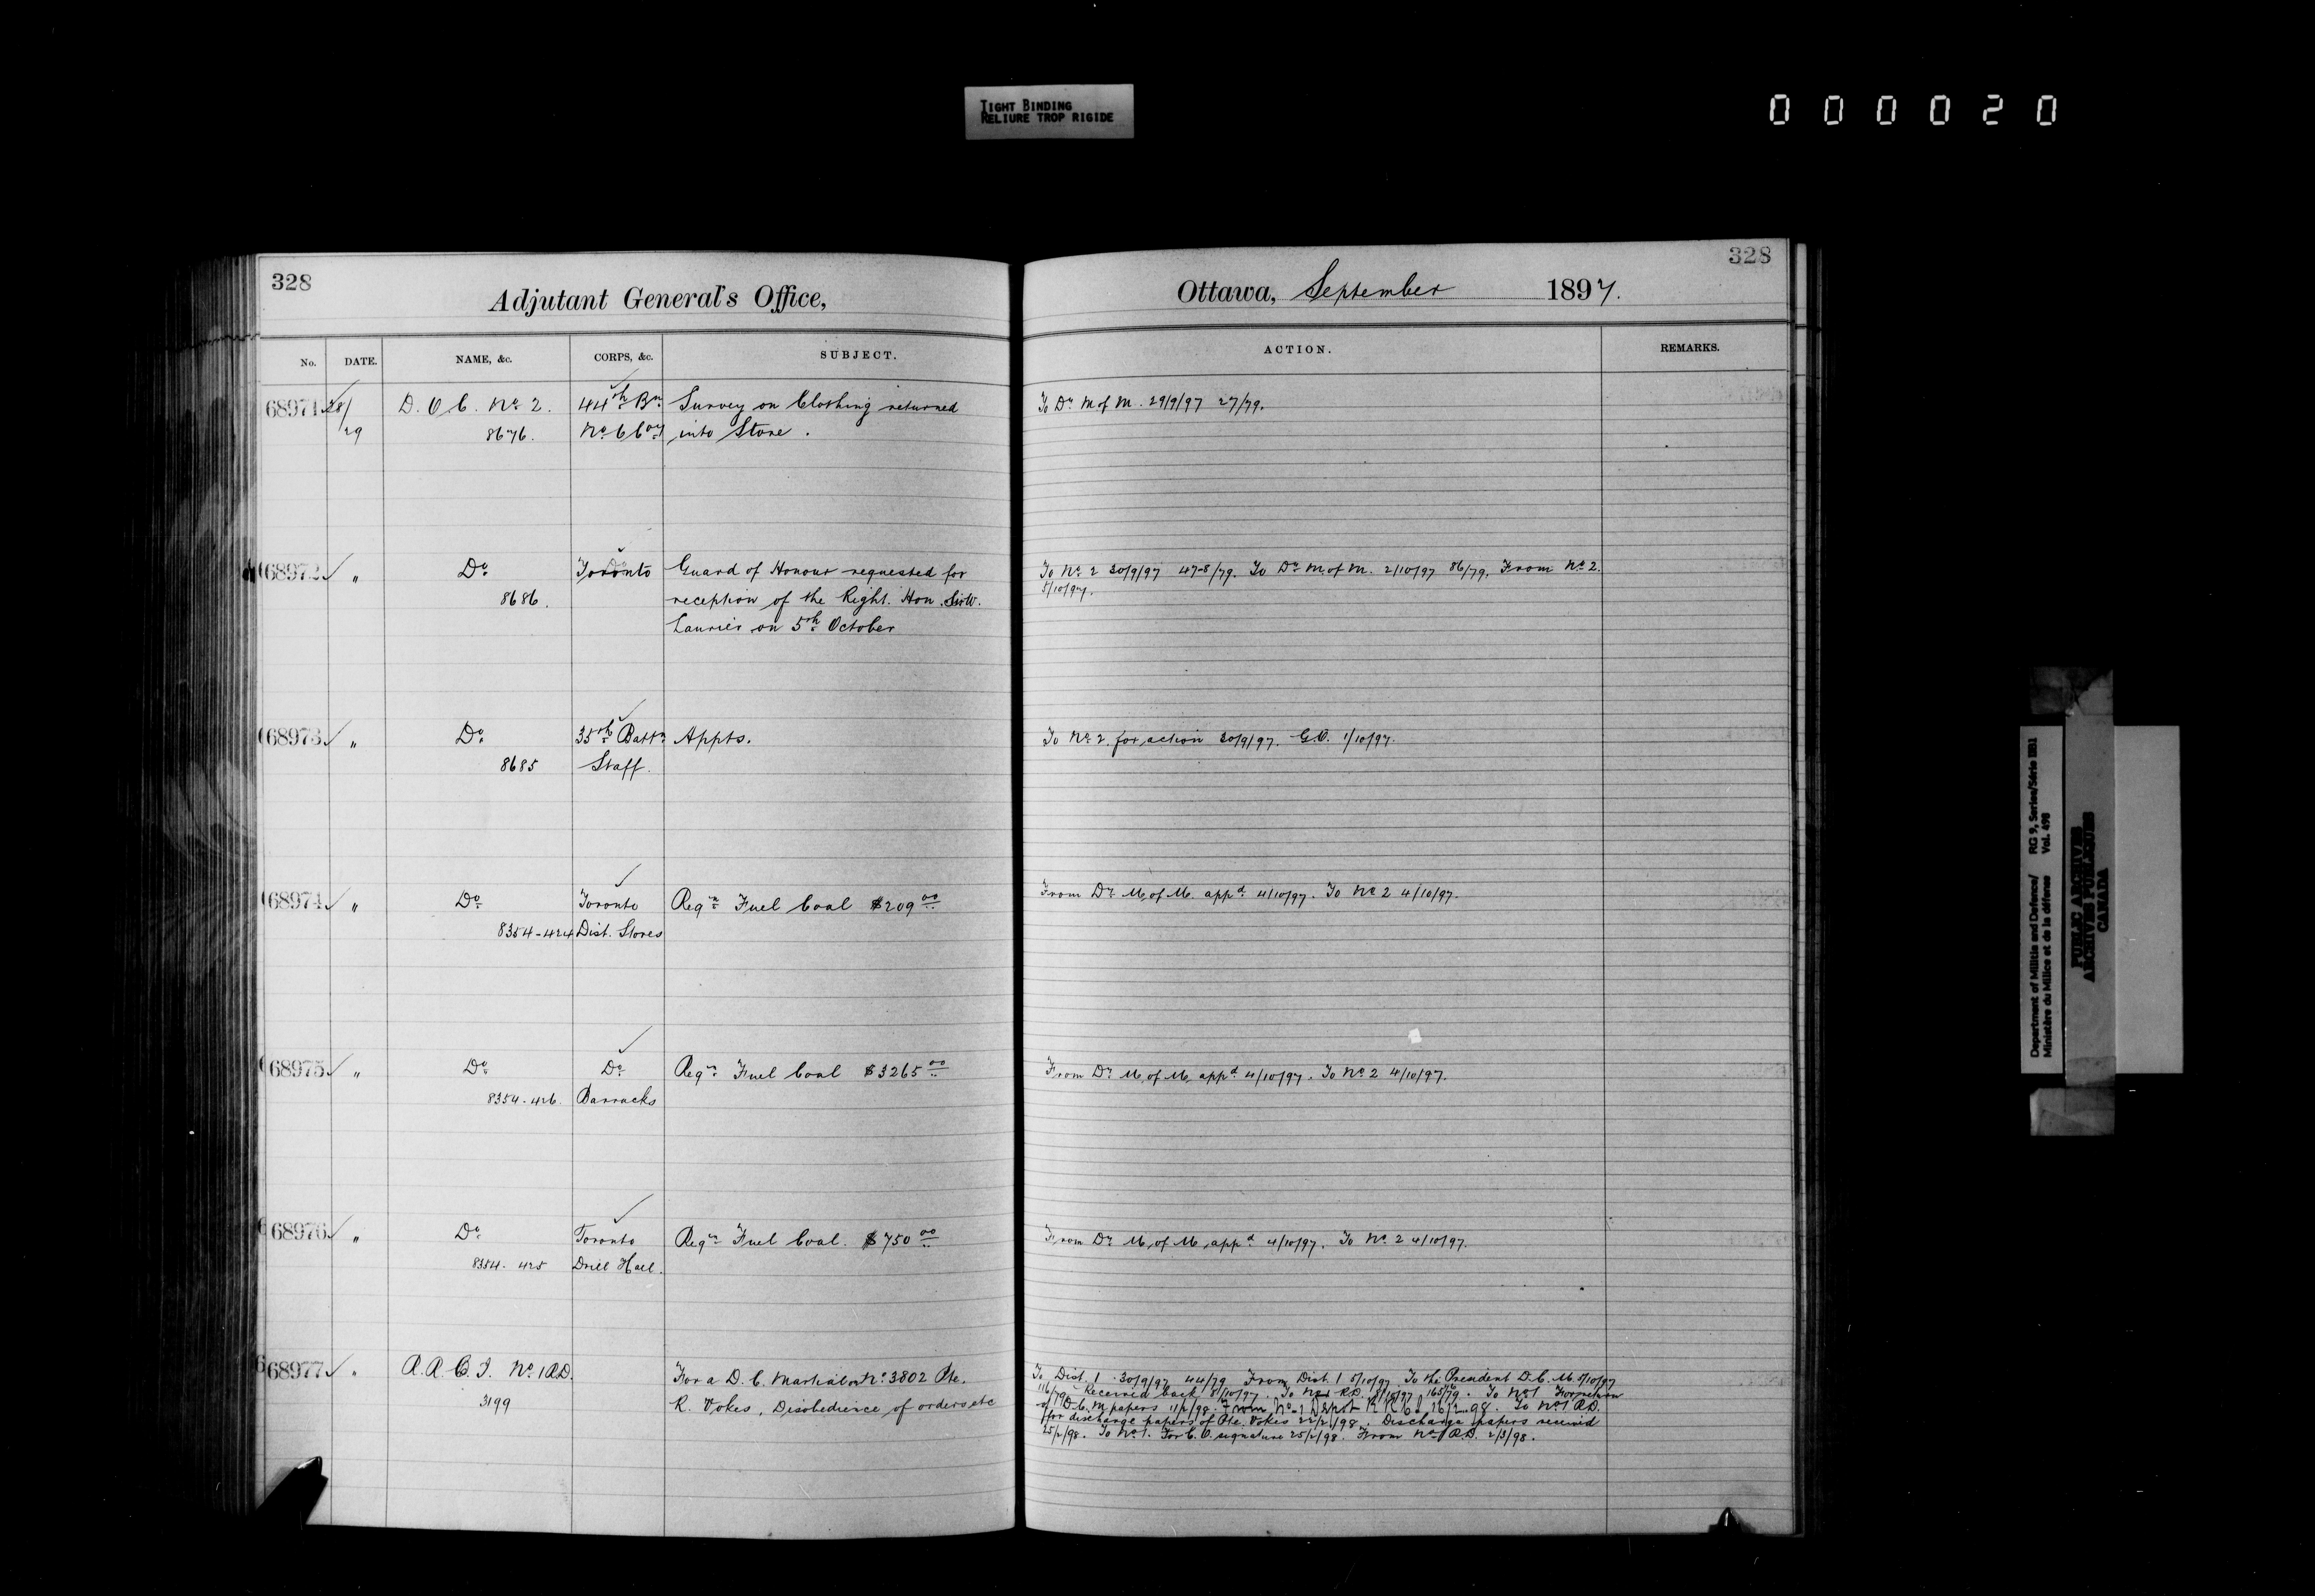 TIGHT BINDING
RELIURE TROP RIGIDE
000020
328
Adjutant General's Office,
No. DATE. NAME, &c. CORPS, &c. SUBJECT.
68971 28/ D. O. C. No. 2. 44th Bn Survey on Clothing returned
29 8676. No. 6 Coy into Store.
68972 " Do. Toronto Guard of Honour requested for
8686. reception of the Right. Hon. Sir W.
Laurier on 5th October
68973 " Do. 35th Battn Appts.
8685 Staff.
68974 " Do. Toronto Reqn Fuel Coal $209 00
8354-424 Dist. Stores
68975 " Do. Do. Reqn Fuel Coal $3265 00
8354-426. Barracks
68976 " Do. Toronto Reqn Fuel Coal. $750 00
8354-425 Drill Hall.
68977 " No. 1 R.D. For a D. C. Martial on No. 3802 Pte.
3199 R. Vokes, Disobedience of orders etc
328
Ottawa, September 1897.
ACTION. REMARKS.
To Dr. M of M. 29/9/97 27/79.
To No. 2 30/9/97 47-8/79. To Dr. M. of M. 2/10/97 86/79. From No. 2.
5/10/97.
To No. 2. for action 30/9/97. G.O. 1/10/97.
From Dr. M. of M. appd. 4/10/97. To No. 2 4/10/97.
From Dr. M. of M. appd. 4/10/97. To No. 2 4/10/97.
From Dr. M. of M. appd 4/10/97. To No. 2 4/10/97.
To Dist. 1 30/9/97 44/79 From Dist. 1 5/10/97. To the President D.C.M. 5/10/97
116/79 Received back 8/10/97. To No. 1 R.D. 165/79. To No. 1
of D.C.M. papers 11/2/98. From No. 1 Depot 16/2/98. To No. 1 R.D.
for discharge papers of Pte. Vokes 22/2/98. Discharge papers received
25/2/98. To No. 1. For C.O. signature 25/2/98. From No. 1 R.D. 2/3/98.
Department of Militia and Defence/ RG 9, Series/Série IIB1
Ministère du Milice et de la défense Vol. 498
PUBLIC ARCHIVES
ARCHIVES PUBLIQUES
CANADA